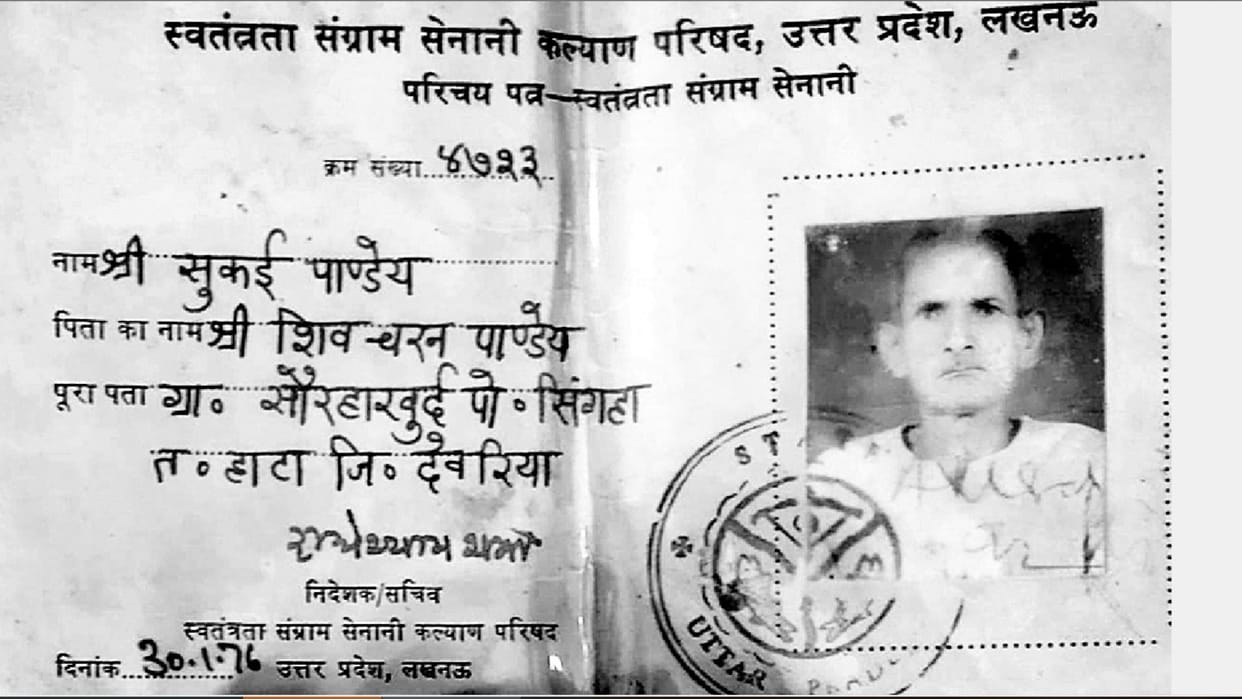 स्वतंत्रता संग्राम सेनानी कल्याण परिषद, उत्तर प्रदेश, लखनऊ
परिचय पत्र—स्वतंत्रता संग्राम सेनानी
क्रम संख्या ४७२३
नाम श्री सुकई पाण्डेय
पिता का नाम श्री शिव चरन पाण्डेय
पूरा पता ग्रा॰ सौरहाखुर्द पो॰ सिंगहा
त॰ हाटा जि॰ देवरिया
राधेश्याम शर्मा
निदेशक/सचिव
स्वतंत्रता संग्राम सेनानी कल्याण परिषद
दिनांक 30.1.76 उत्तर प्रदेश, लखनऊ
UTTAR